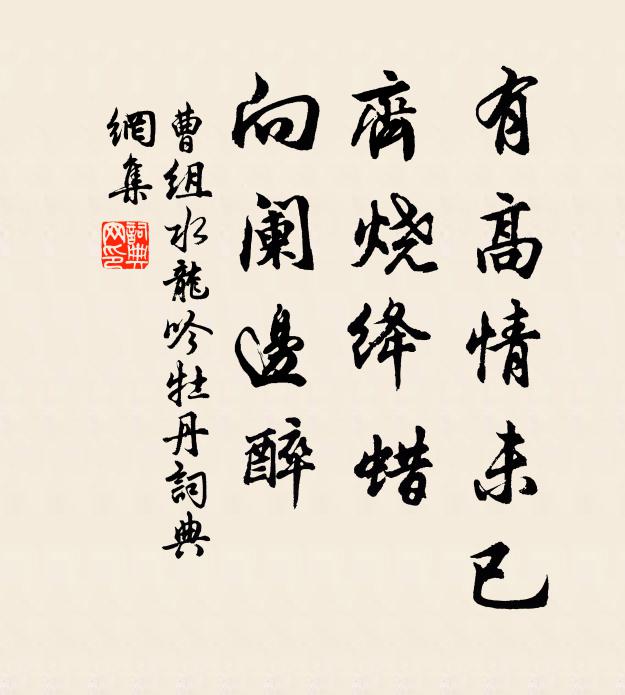 有高情未已
齊烧绛蜡
向阑邊醉
曹组水龍吟牡丹詞典
網集
詞典网印